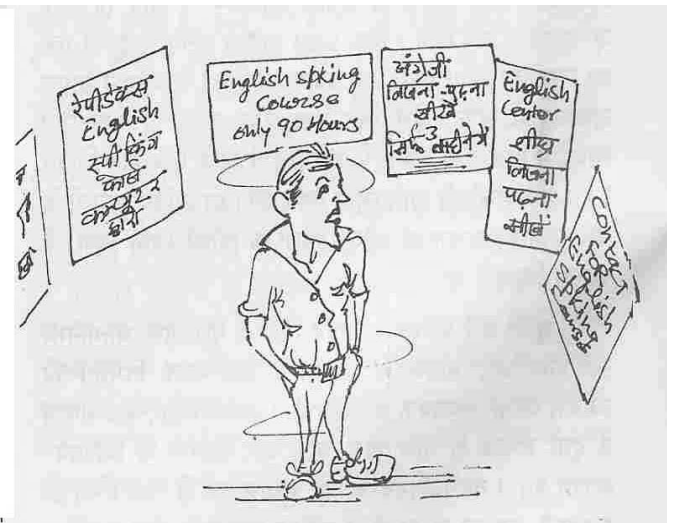 रेपीडेक्स
English
स्पीकिंग
कोर्स
कम्प्यूटर
द्वारा
English spking
Course
only 90 Hours
अंग्रेजी
लिखना-पढ़ना
सीखें
सिर्फ 3 महीने में
English
Center
शीघ्र
लिखना
पढ़ना
सीखें
Contact
FOR
English
spking